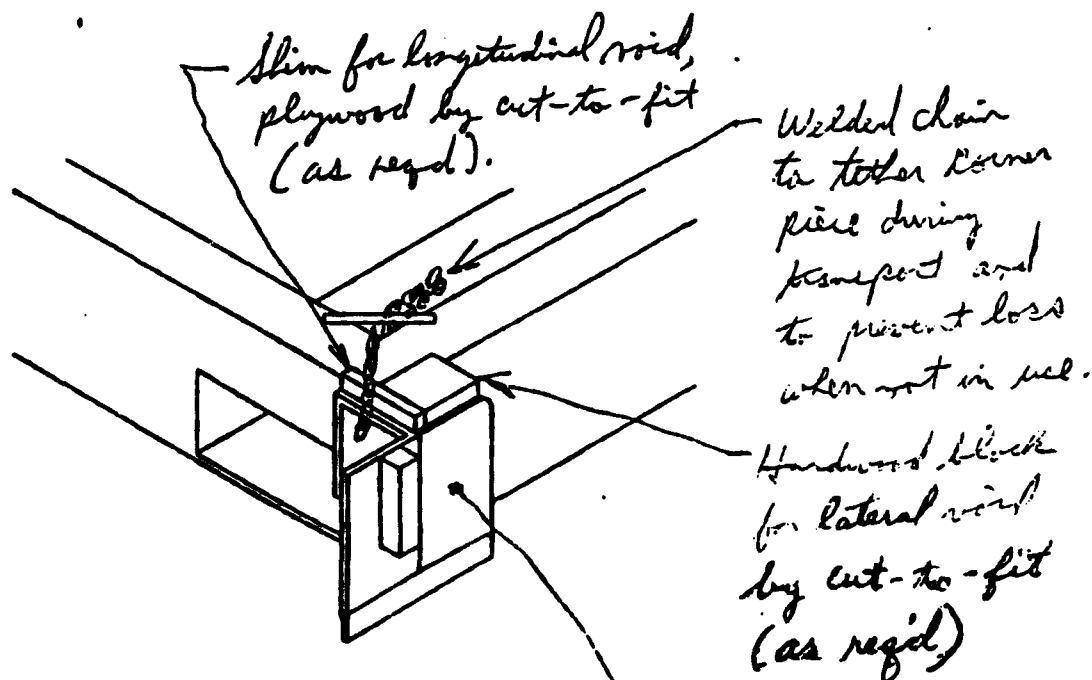 Shim for longitudinal void,
plywood by cut-to-fit
(as req'd).
Welded chain
to tether corner
piece during
transport and
to prevent loss
when not in use.
Hardwood block
for lateral void
by cut-to-fit
(as req'd.)